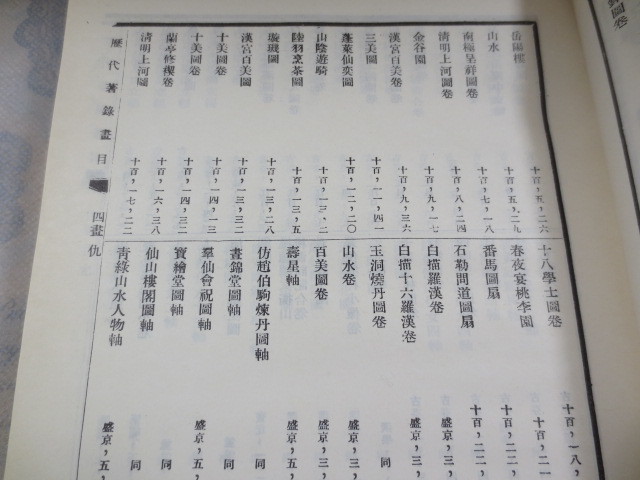 岳陽樓 十百,五,二六
山水 十百,五,二九
南極呈祥圖卷 十百,七,一八
清明上河圖卷 十百,八,二四
金谷園 十百,九,一七
漢宮百美卷 十百,九,三六
三美圖 十百,一一,四一
蓬萊仙奕圖 十百,一二,二〇
山陰遊騎 十百,一三,二
陸羽烹茶圖 十百,一三,五
璇璣圖 十百,一三,二八
漢宮百美圖 十百,一三,三二
十美圖卷 十百,一四,三
十美圖卷 十百,一四,三二
蘭亭修禊卷 十百,一六,三八
清明上河圖 十百,一七,二二
十八學士圖卷 十百,一八,
春夜宴桃李園 十百,二一
番馬圖扇 十百,二二,
石勒問道圖扇 十百,二二,
白描羅漢卷 盛京,三,
白描十六羅漢卷 盛京,三,
玉洞燒丹圖卷 同
山水卷 盛京,三,
百美圖卷 盛京,三,
壽星軸 盛京,五,
仿趙伯駒煉丹圖軸 同
晝錦堂圖軸 同
羣仙會祝圖軸 盛京,五,
寶繪堂圖軸 同
仙山樓閣圖軸 同
青綠山水人物軸 盛京,五,
歷代著錄畫目 四畫 仇
圖卷